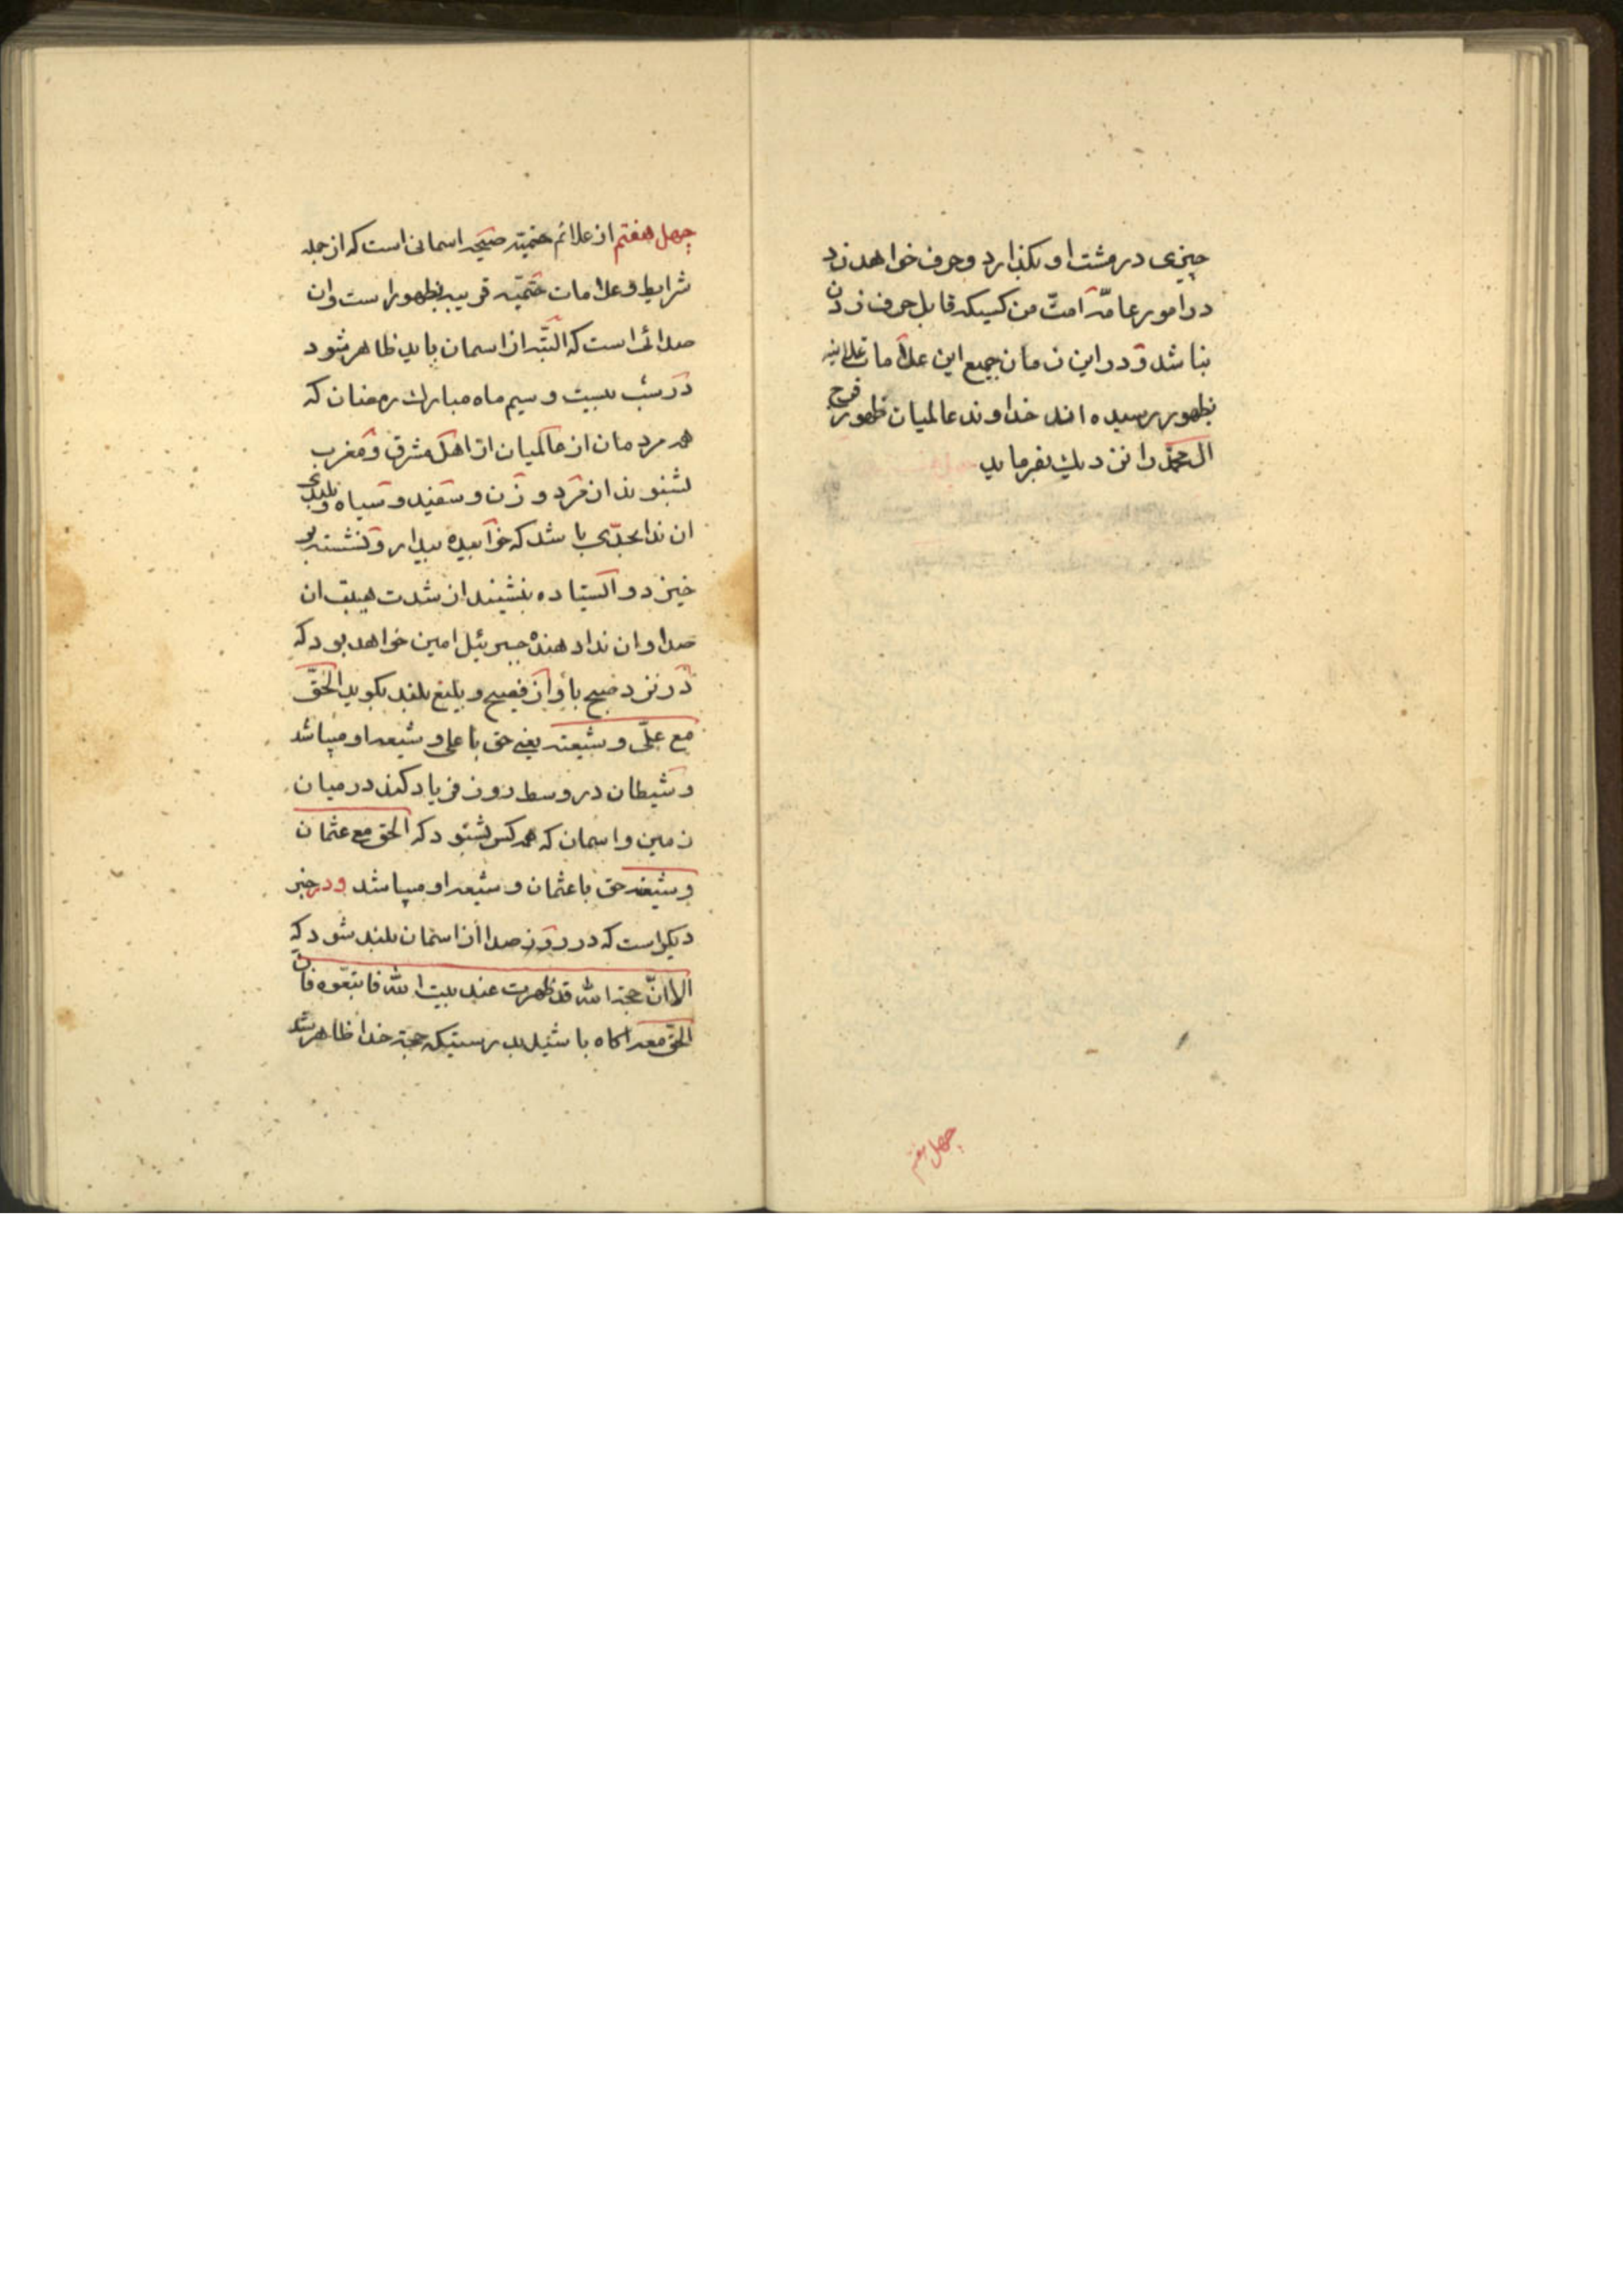 چیزی در مشت او بگذارد و حرف خواهد زد
در امور عامّه امتّ من کسیکه قابل حرف زدن
نباشد و در این زمان جمیع این علامات علانیه
بظهور رسیده اند خداوند عالمیان ظهور فرج
ال محمّد را نزدیک بفرماید
چهل هفتم
چهل هفتم از علائم حتمیّه صیحه اسمانی است که از جمله
شرایط و علامات حتمیّه قریبه بظهور است وان
صدائی است که البتّه از اسمان باید ظاهر شود
در شب بیست و سیم ماه مبارک رمضان که
همه مردمان از عالمیان از اهل مشرق و مغرب
بشنوند از مرد و زن و سفید و سیاه و بلندی
ان ندا بحدّی باشد که خوابیده بیدار و نشسته بر
خیزد و ایستاده بنشیند از شدت هیبت ان
صدا و ان ندا دهنده جبرئیل امین خواهد بود که
در نزد صبح باواز فصیح و بلیغ بلند بکوید الحقّ
مع علّی و شیعته یعنی حق با علی و شیعه او میباشد
و شیطان در وسط روز فریاد کند در میان
زمین و اسمان که همه کس بشنود که الحق مع عثمان
و شیعته حق با عثمان و شیعه او میباشد و در خبر
دیکر است که در روز صدا از اسمان بلند شود که
الا انّ حجة الله قد ظهرت عند بیت الله فاتبعّوه فان
الحق معه اکاه باشید بدرستیکه حجة خدا ظاهر شد